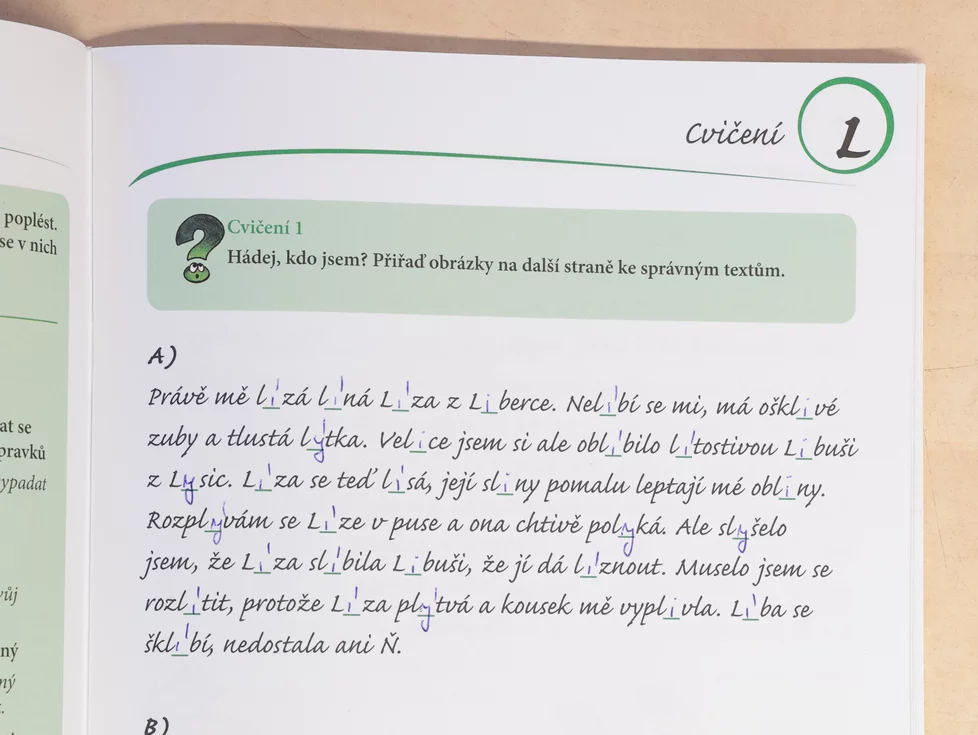 poplést.
se v nich
at se
pravků
vypadat
vůj
ný
ný
Cvičení L
Cvičení 1
Hádej, kdo jsem? Přiřaď obrázky na další straně ke správným textům.
A)
Právě mě lízá líná Líza z Liberce. Nelíbí se mi, má ošklivé
zuby a tlustá lýtka. Velice jsem si ale oblíbilo lítostivou Libuši
z Lysic. Líza se teď lísá, její sliny pomalu leptají mé obliny.
Rozplývám se Líze v puse a ona chtivě polyká. Ale slyšelo
jsem, že Líza slíbila Libuši, že jí dá líznout. Muselo jsem se
rozlítit, protože Líza plýtvá a kousek mě vyplivla. Líba se
šklíbí, nedostala ani Ň.
B)